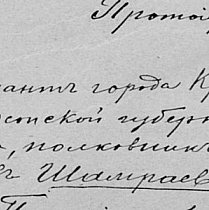 Протоі
дантъ города Кр
рсонской губерн
, полковникъ
Шамраев